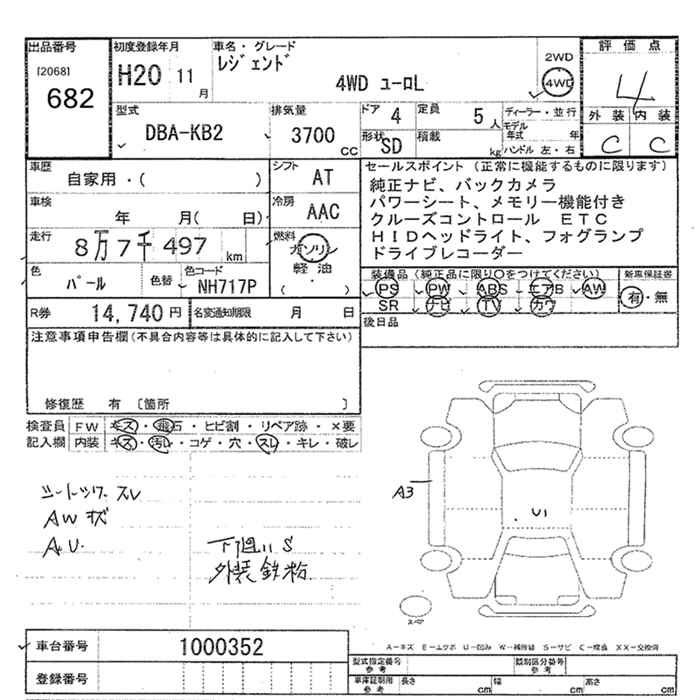 出品番号
[2068]
682
初度登録年月
H20 11月
車名・グレード
レジェンド
4WD ユーロL
2WD
4WD
評価点
4
外装 内装
C C
型式
DBA-KB2
排気量
3700 CC
ドア 4
定員 5人
形状 SD
積載 kg
ディーラー・並行
モデル年式 年
ハンドル 左・右
車歴
自家用・( )
シフト AT
車検
年 月( 日)
冷房 AAC
走行
8万7千497 km
燃料
ガソリン
軽油
( ・ )
色
パール
色替
色コード
NH717P
セールスポイント (正常に機能するものに限ります)
純正ナビ、バックカメラ
パワーシート、メモリー機能付き
クルーズコントロール ETC
HIDヘッドライト、フォグランプ
ドライブレコーダー
装備品(純正品に限り○をつけてください)
新車保証書
PS PW ABS エアB AW
有・無
SR ナビ TV カワ
後日品
R券 14,740円
名変通知期限 月 日
注意事項申告欄(不具合内容等は具体的に記入して下さい)
修復歴 有 [箇所 ]
検査員 FW キズ・飛石・ヒビ割・リペア跡・×要
記入欄 内装 キズ・汚レ・コゲ・穴・スレ・キレ・破レ
シートツヤ スレ
AWキズ
A.U.
下廻りS
外装鉄粉
A3
U1
スペア
車台番号 1000352
登録番号
A-キズ E-エクボ U-凹み W-補修跡 S-サビ C-腐食 XX-交換済
型式指定番号 参考
類別区分番号 参考
車庫証明用 参考
長さ cm
幅 cm
高さ cm